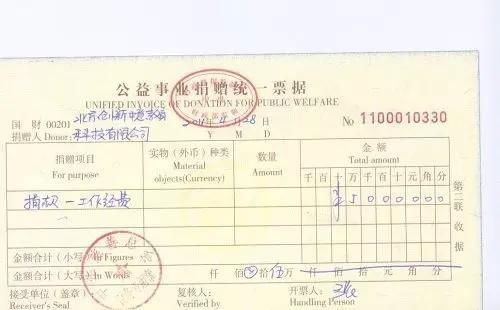 公益事业捐赠统一票据
UNIFIED INVOICE OF DONATION FOR PUBLIC WELFARE
国 财 00201 北京创新
捐赠人 Donor: 科技有限公司 2011 年 4 月 28 日 № 1100010330
Y M D
捐赠项目 实物（外币）种类 数量 金额
For purpose Material objects(Currency) Amount Total amount
千 百 十 万 千 百 十 元 角 分
捐款 — 工作经费 ¥ 5 0 0 0 0 0 0
第二联 收据
金额合计（小写）In Figures
金额合计（大写）In Words 仟 佰 拾 伍 万 仟 佰 拾 元 角 分
接受单位（盖章）： 复核人： 开票人：
Receiver's Seal Verified by Handling Person